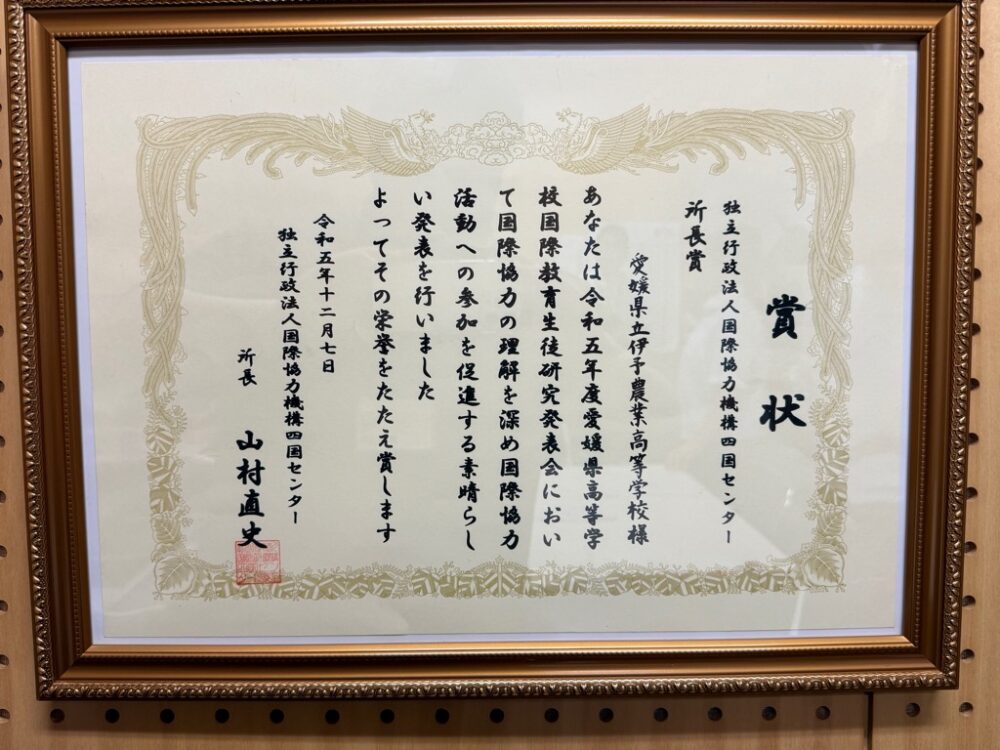 賞状
独立行政法人国際協力機構四国センター
所長賞
愛媛県立伊予農業高等学校様
あなたは令和五年度愛媛県高等学
校国際教育生徒研究発表会におい
て国際協力の理解を深め国際協力
活動への参加を促進する素晴らし
い発表を行いました
よってその栄誉をたたえ賞します
令和五年十二月七日
独立行政法人国際協力機構四国センター
所長 山村直史